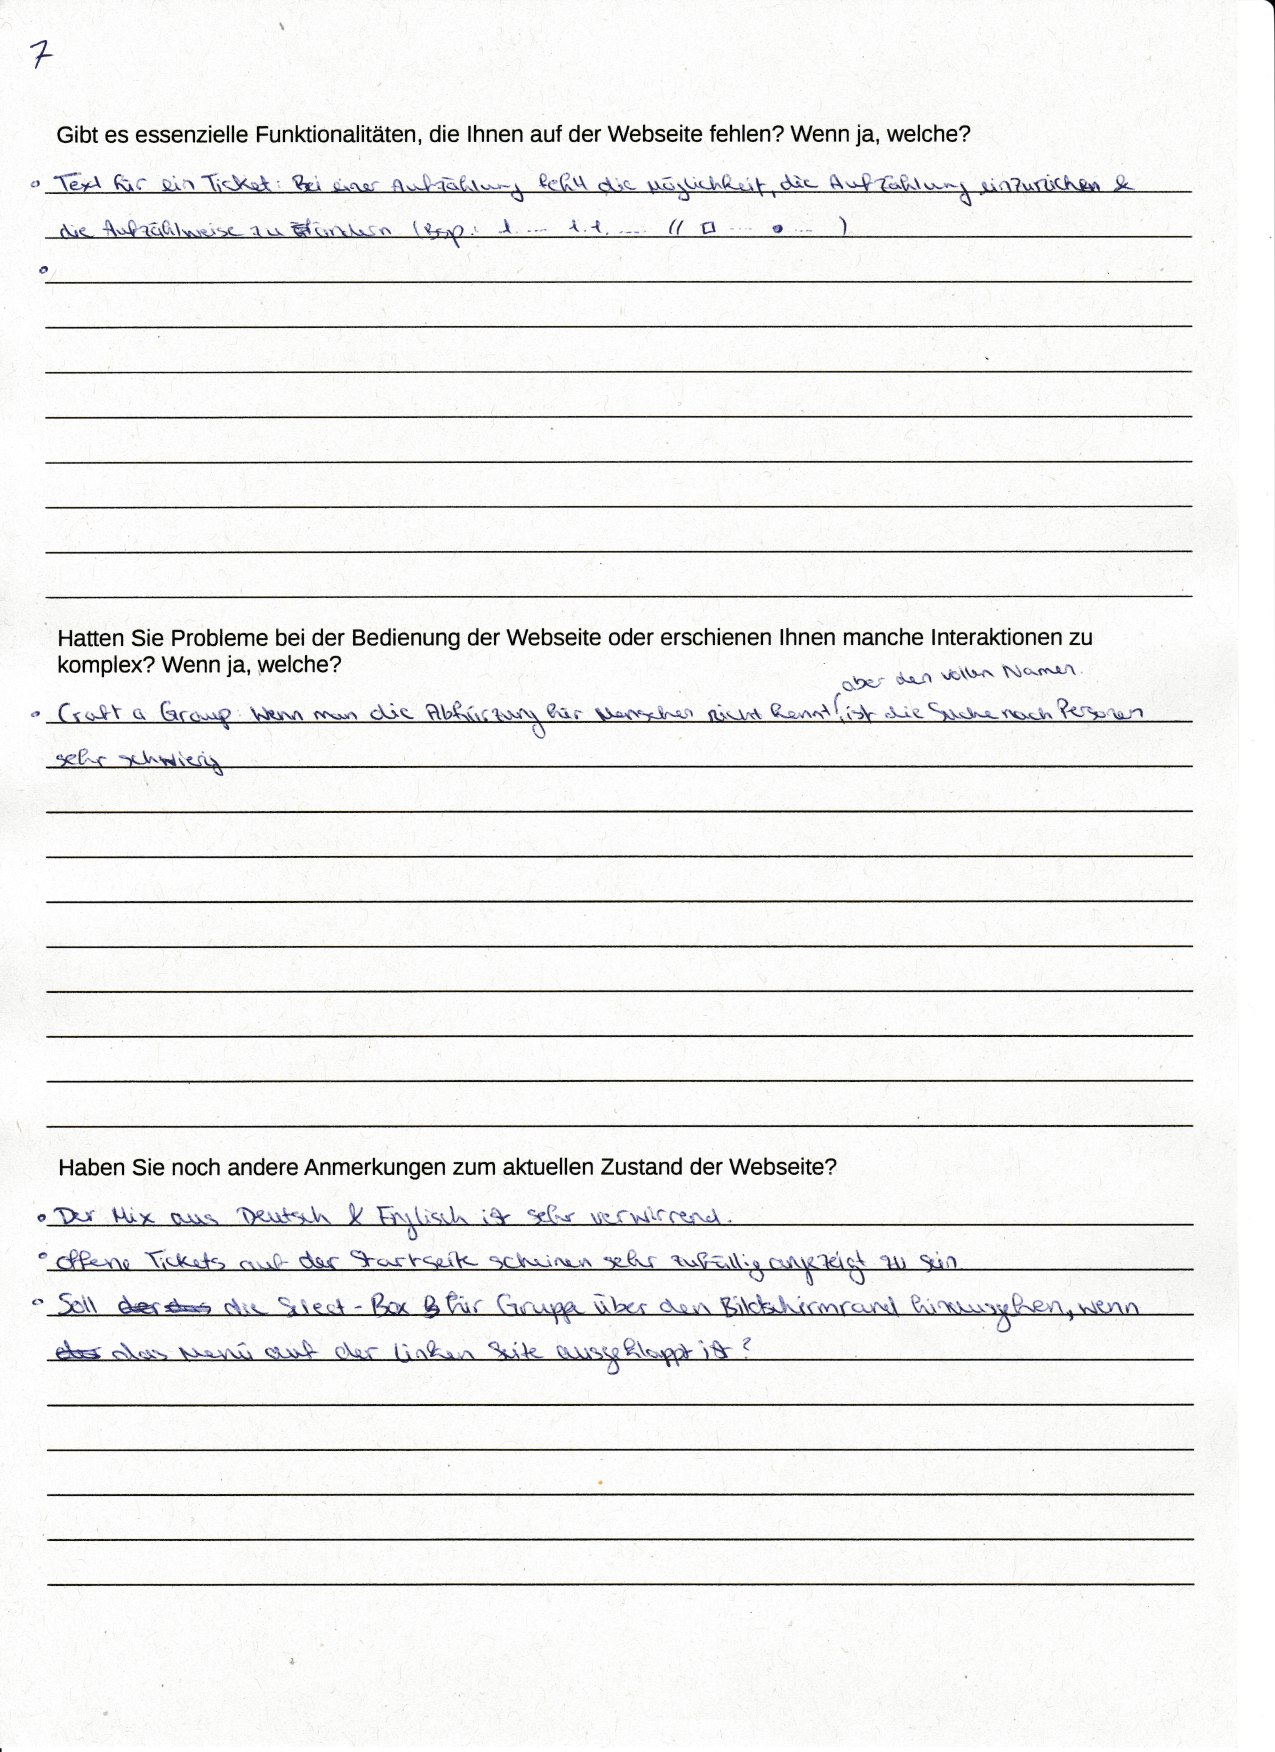 7
Gibt es essenzielle Funktionalitäten, die Ihnen auf der Webseite fehlen? Wenn ja, welche?
• Text für ein Ticket: Bei einer Aufzählung fehlt die Möglichkeit, die Aufzählung einzurücken &
die Aufzählweise zu ändern (Bsp.: 1. ... 1.1. .... // □ ... • ... )
•
Hatten Sie Probleme bei der Bedienung der Webseite oder erschienen Ihnen manche Interaktionen zu
komplex? Wenn ja, welche?
aber den vollen Namen.
• Craft a Group: Wenn man die Abkürzung für Menschen nicht kennt, ist die Suche nach Personen
sehr schwierig
Haben Sie noch andere Anmerkungen zum aktuellen Zustand der Webseite?
• Der Mix aus Deutsch & Englisch ist sehr verwirrend.
• Offene Tickets auf der Startseite scheinen sehr zufällig angezeigt zu sein
• Soll der das die Select-Box für Gruppe über den Bildschirmrand hinausgehen, wenn
das das Menü auf der linken Seite ausgeklappt ist?